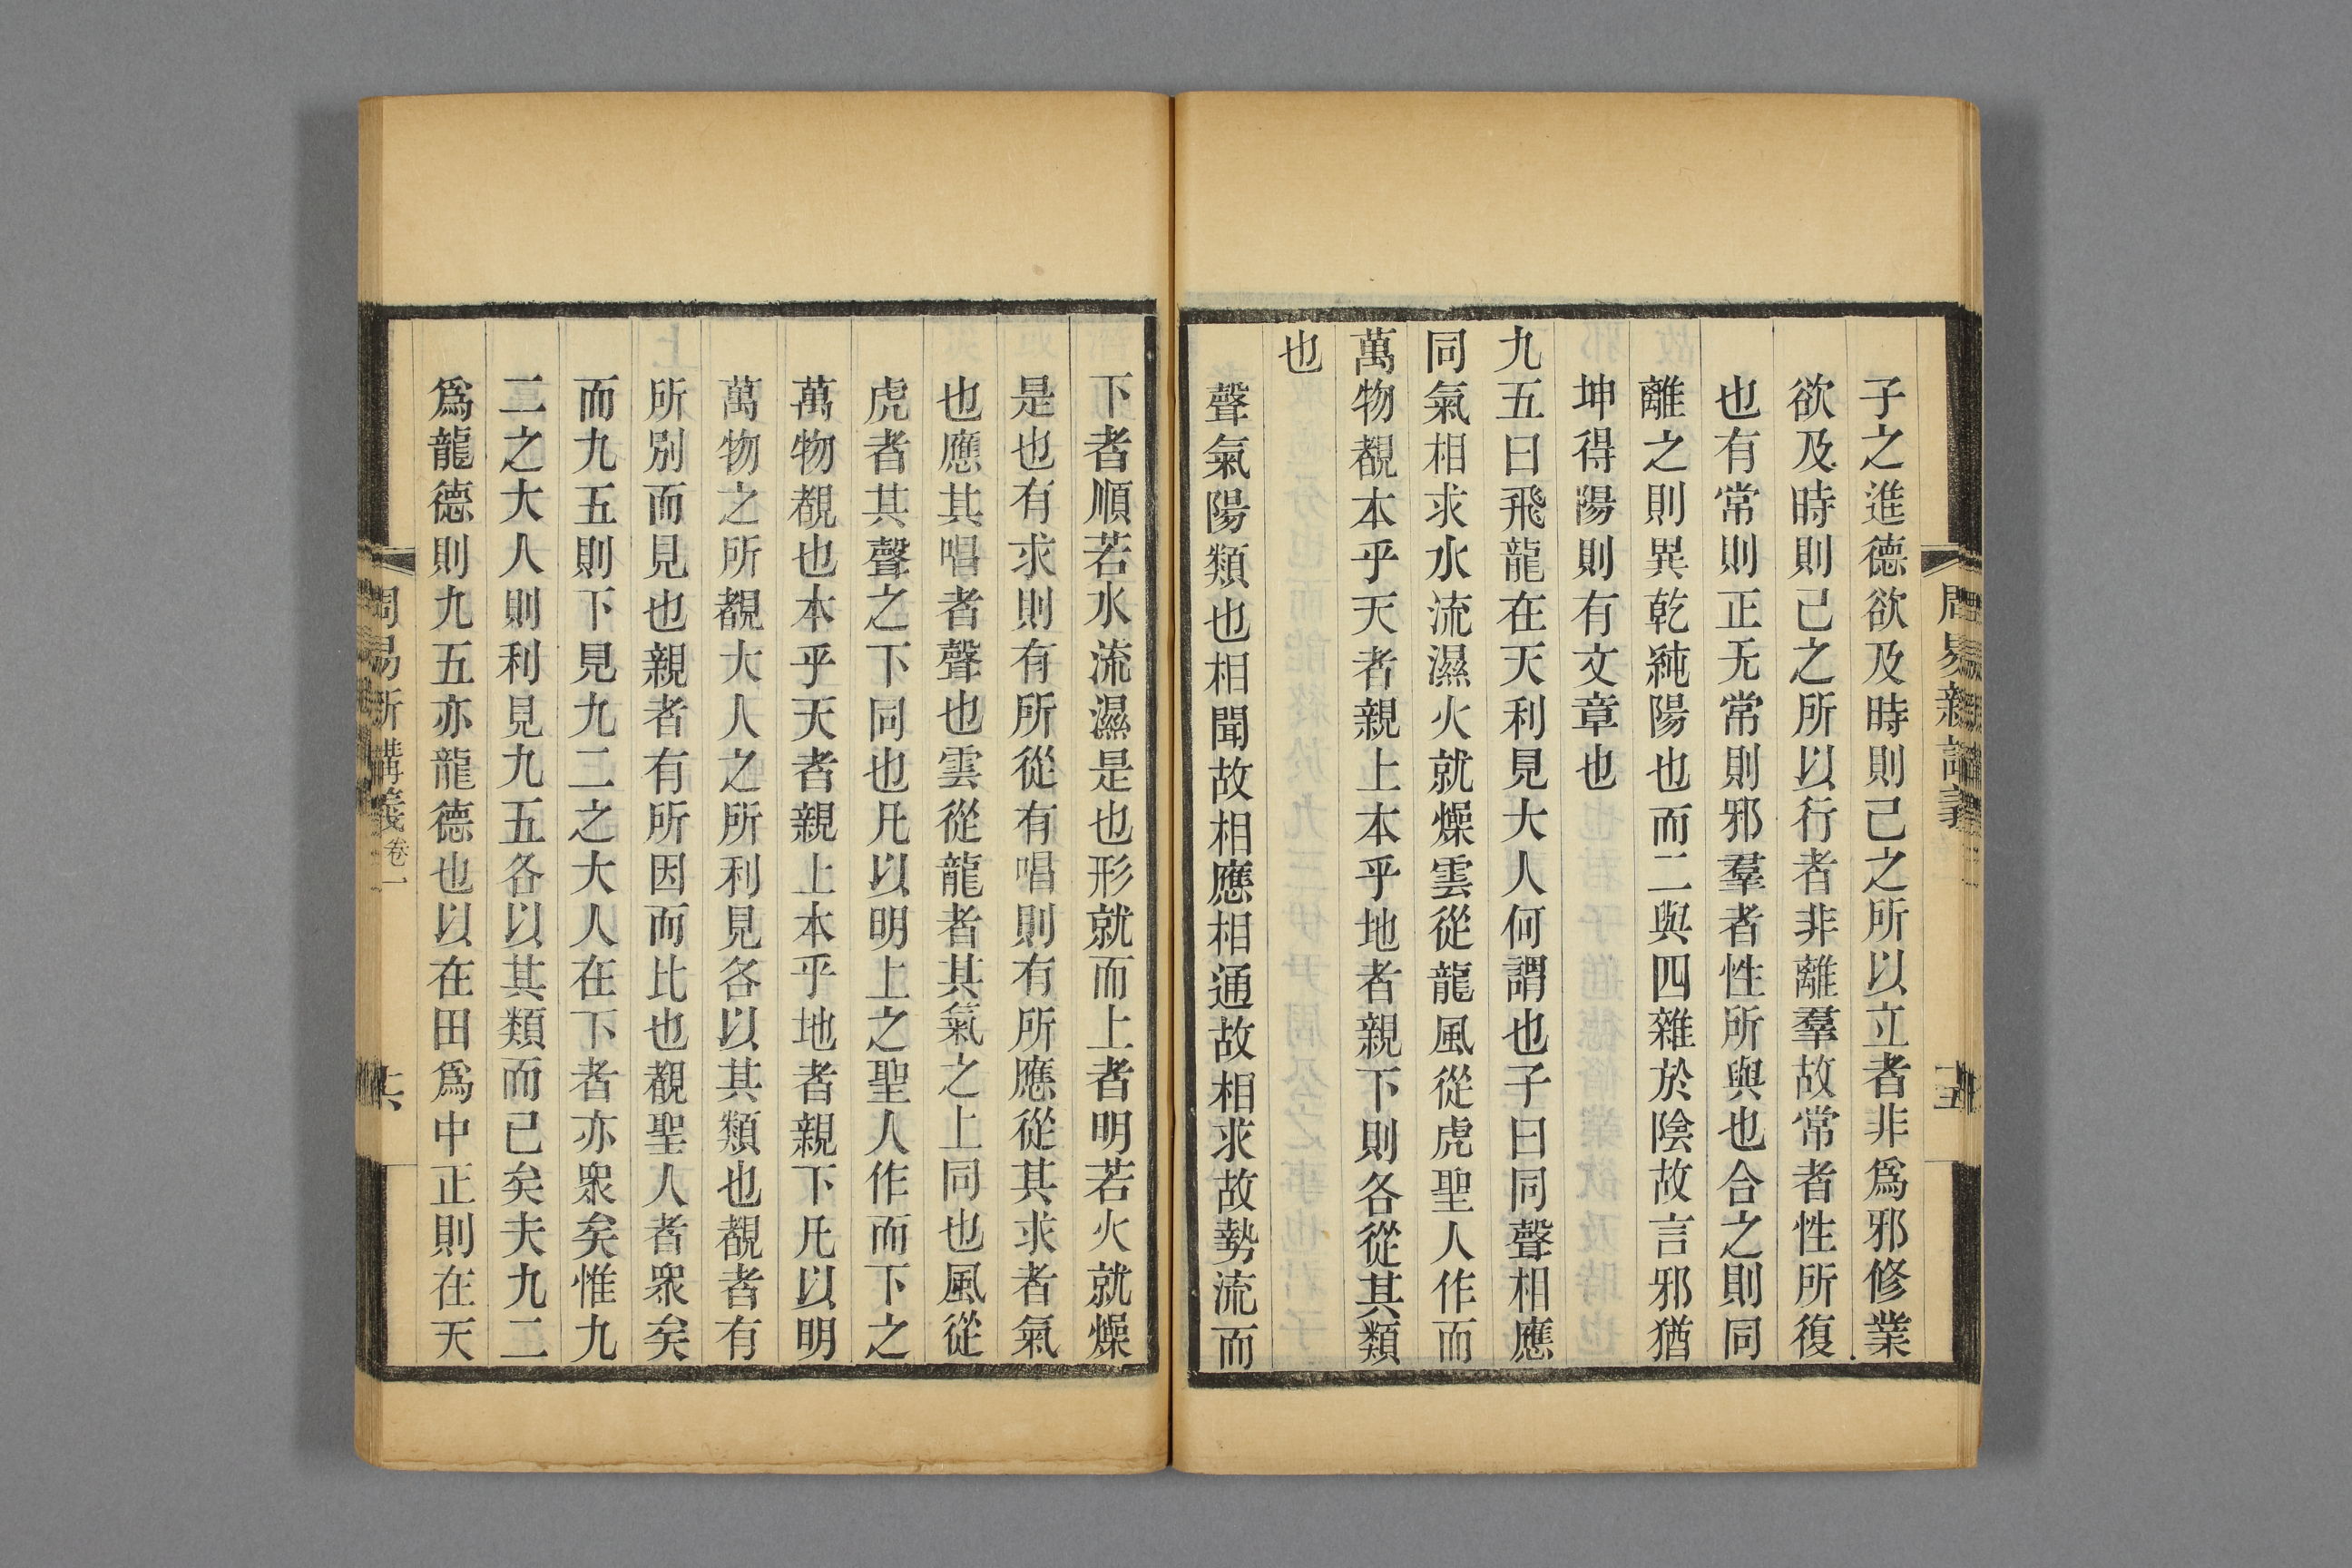 子之進德欲及時則己之所以立者非爲邪修業
欲及時則己之所以行者非離羣故常者性所復
也有常則正无常則邪羣者性所與也合之則同
離之則異乾純陽也而二與四雜於陰故言邪猶
坤得陽則有文章也
九五曰飛龍在天利見大人何謂也子曰同聲相應
同氣相求水流濕火就燥雲從龍風從虎聖人作而
萬物覩本乎天者親上本乎地者親下則各從其類
也
聲氣陽類也相聞故相應相通故相求故勢流而
下者順若水流濕是也形就而上者明若火就燥
是也有求則有所從有唱則有所應從其求者氣
也應其唱者聲也雲從龍者其氣之上同也風從
虎者其聲之下同也凡以明上之聖人作而下之
萬物覩也本乎天者親上本乎地者親下凡以明
萬物之所覩大人之所利見各以其類也覩者有
所別而見也親者有所因而比也覩聖人者衆矣
而九五則下見九二之大人在下者亦衆矣惟九
二之大人則利見九五各以其類而已矣夫九二
爲龍德則九五亦龍德也以在田爲中正則在天
周易新講義 卷一
十六